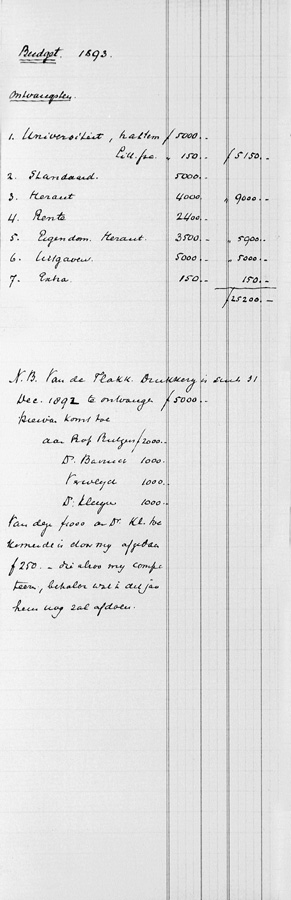 Budget. 1893.
Ontvangsten.
1. Universiteit, f 5000.-
" 150.- f 5150.-
2. Standaard. 5000.-
3. Heraut 4000. " 9000.-
4. Rente 2400.-
5. Eigendom. Heraut. 3500.- " 5900.-
6. Uitgaven. 5000.- " 5000.-
7. Extra. 150.- 150.-
f 25200.-
N.B. Van de Drukkerij is 31
Dec. 1892 te ontvangen f 5000.-
hiervan komt toe
aan Prof Rutgers f 2000.-
Dr. 1000.-
1000.-
Dr. 1000.-
Van deze f 1000 Dr. Kl. toe
komende is door mij
f 250.- die alzoo mij
teeren, behalve wat ik dit jaar
hem nog zal afdoen.